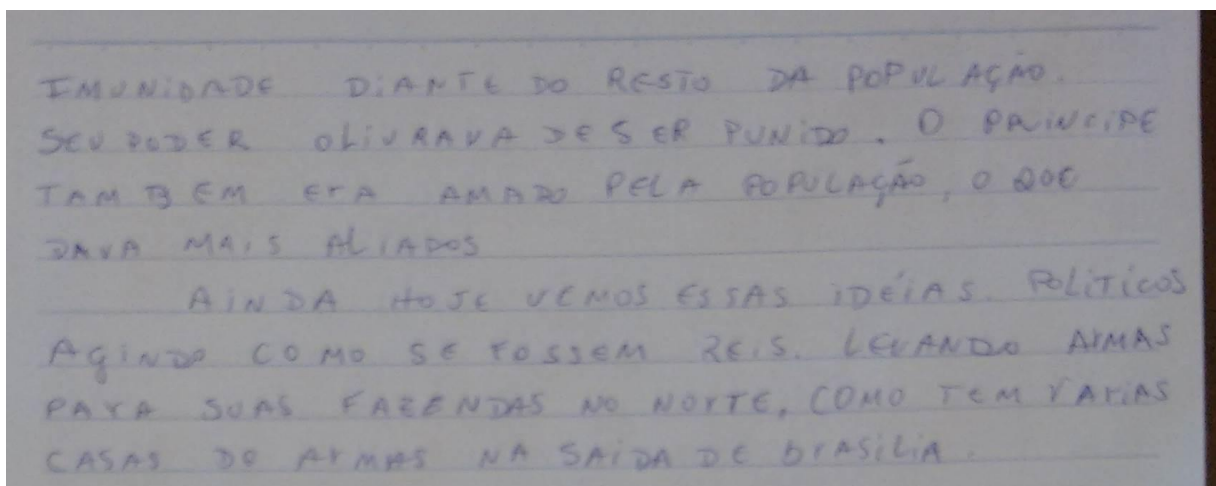 IMUNIDADE DIANTE DO RESTO DA POPULAÇÃO.
SEU PODER OLIVRAVA DE SER PUNIDO. O PRINCIPE
TAMBEM ErA AMADO PELA POPULAÇÃO, O QUE
DAVA MAIS ALIADOS
AINDA HOJE VEMOS ESSAS IDÉIAS. POLITICOS
AGINDO COMO SE FOSSEM REIS. LEVANDO ArMAS
PArA SUAS FAZENDAS NO NOrTE, COMO TEM VArIAS
CASAS DE ArMAS NA SAIDA DE brASILIA.